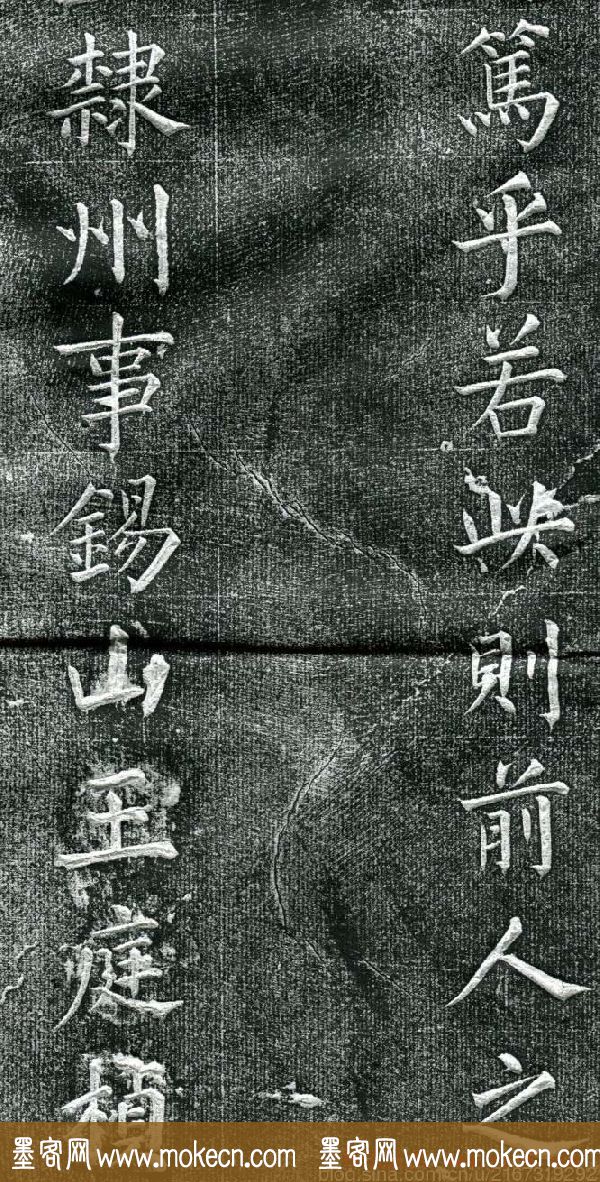 篤乎若此則前人之
隸州事錫山王庭楨
墨客网 www.mokecn.com 墨客网 www.mokecn.com
blog.sina.com.cn/u/2167319292